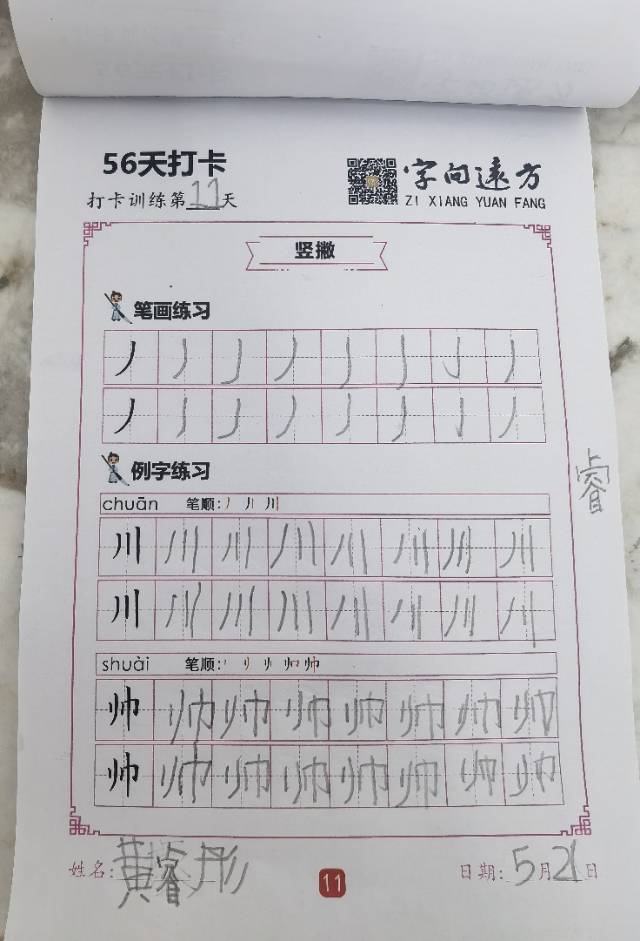 56天打卡
字向远方
打卡训练第11天
ZI XIANG YUAN FANG
竖撇
笔画练习
丿丿丿丿丿丿丿丿
丿丿丿丿丿丿丿丿
例字练习
睿
chuān 笔顺:丿 丿丨 川
川川川川川川川川
川川川川川川川川
shuài 笔顺:
帅帅帅帅帅帅帅帅
帅帅帅帅帅帅帅帅
姓名:黄睿彤
11
日期:5月21日